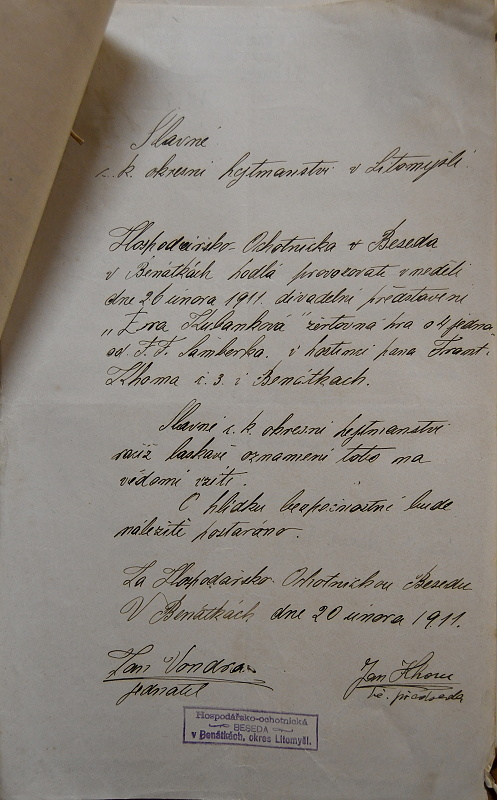 Slavné
c. k. okresní hejtmanství v Litomyšli.
Hospodářsko-Ochotnická Beseda
v Benátkách hodlá provozovati v neděli
dne 26 února 1911. divadelní představení
„Eva Kubanková" žertovná hra o 4 jedná.
od F. F. Šamberka. v hostinci pana Frant.
č. 3. v Benátkách.
Slavné c. k. okresní hejtmanství
račiž laskavě oznámení toto na
vědomí vzíti.
O hlídku bezpečnostní bude
náležitě postaráno.
Za Hospodářsko-Ochotnickou Besedu
V Benátkách dne 20 února 1911.
Jan Vondra
jednatel
Jan
t. č. předseda
Hospodářsko-ochotnická
BESEDA
v Benátkách, okres Litomyšl.